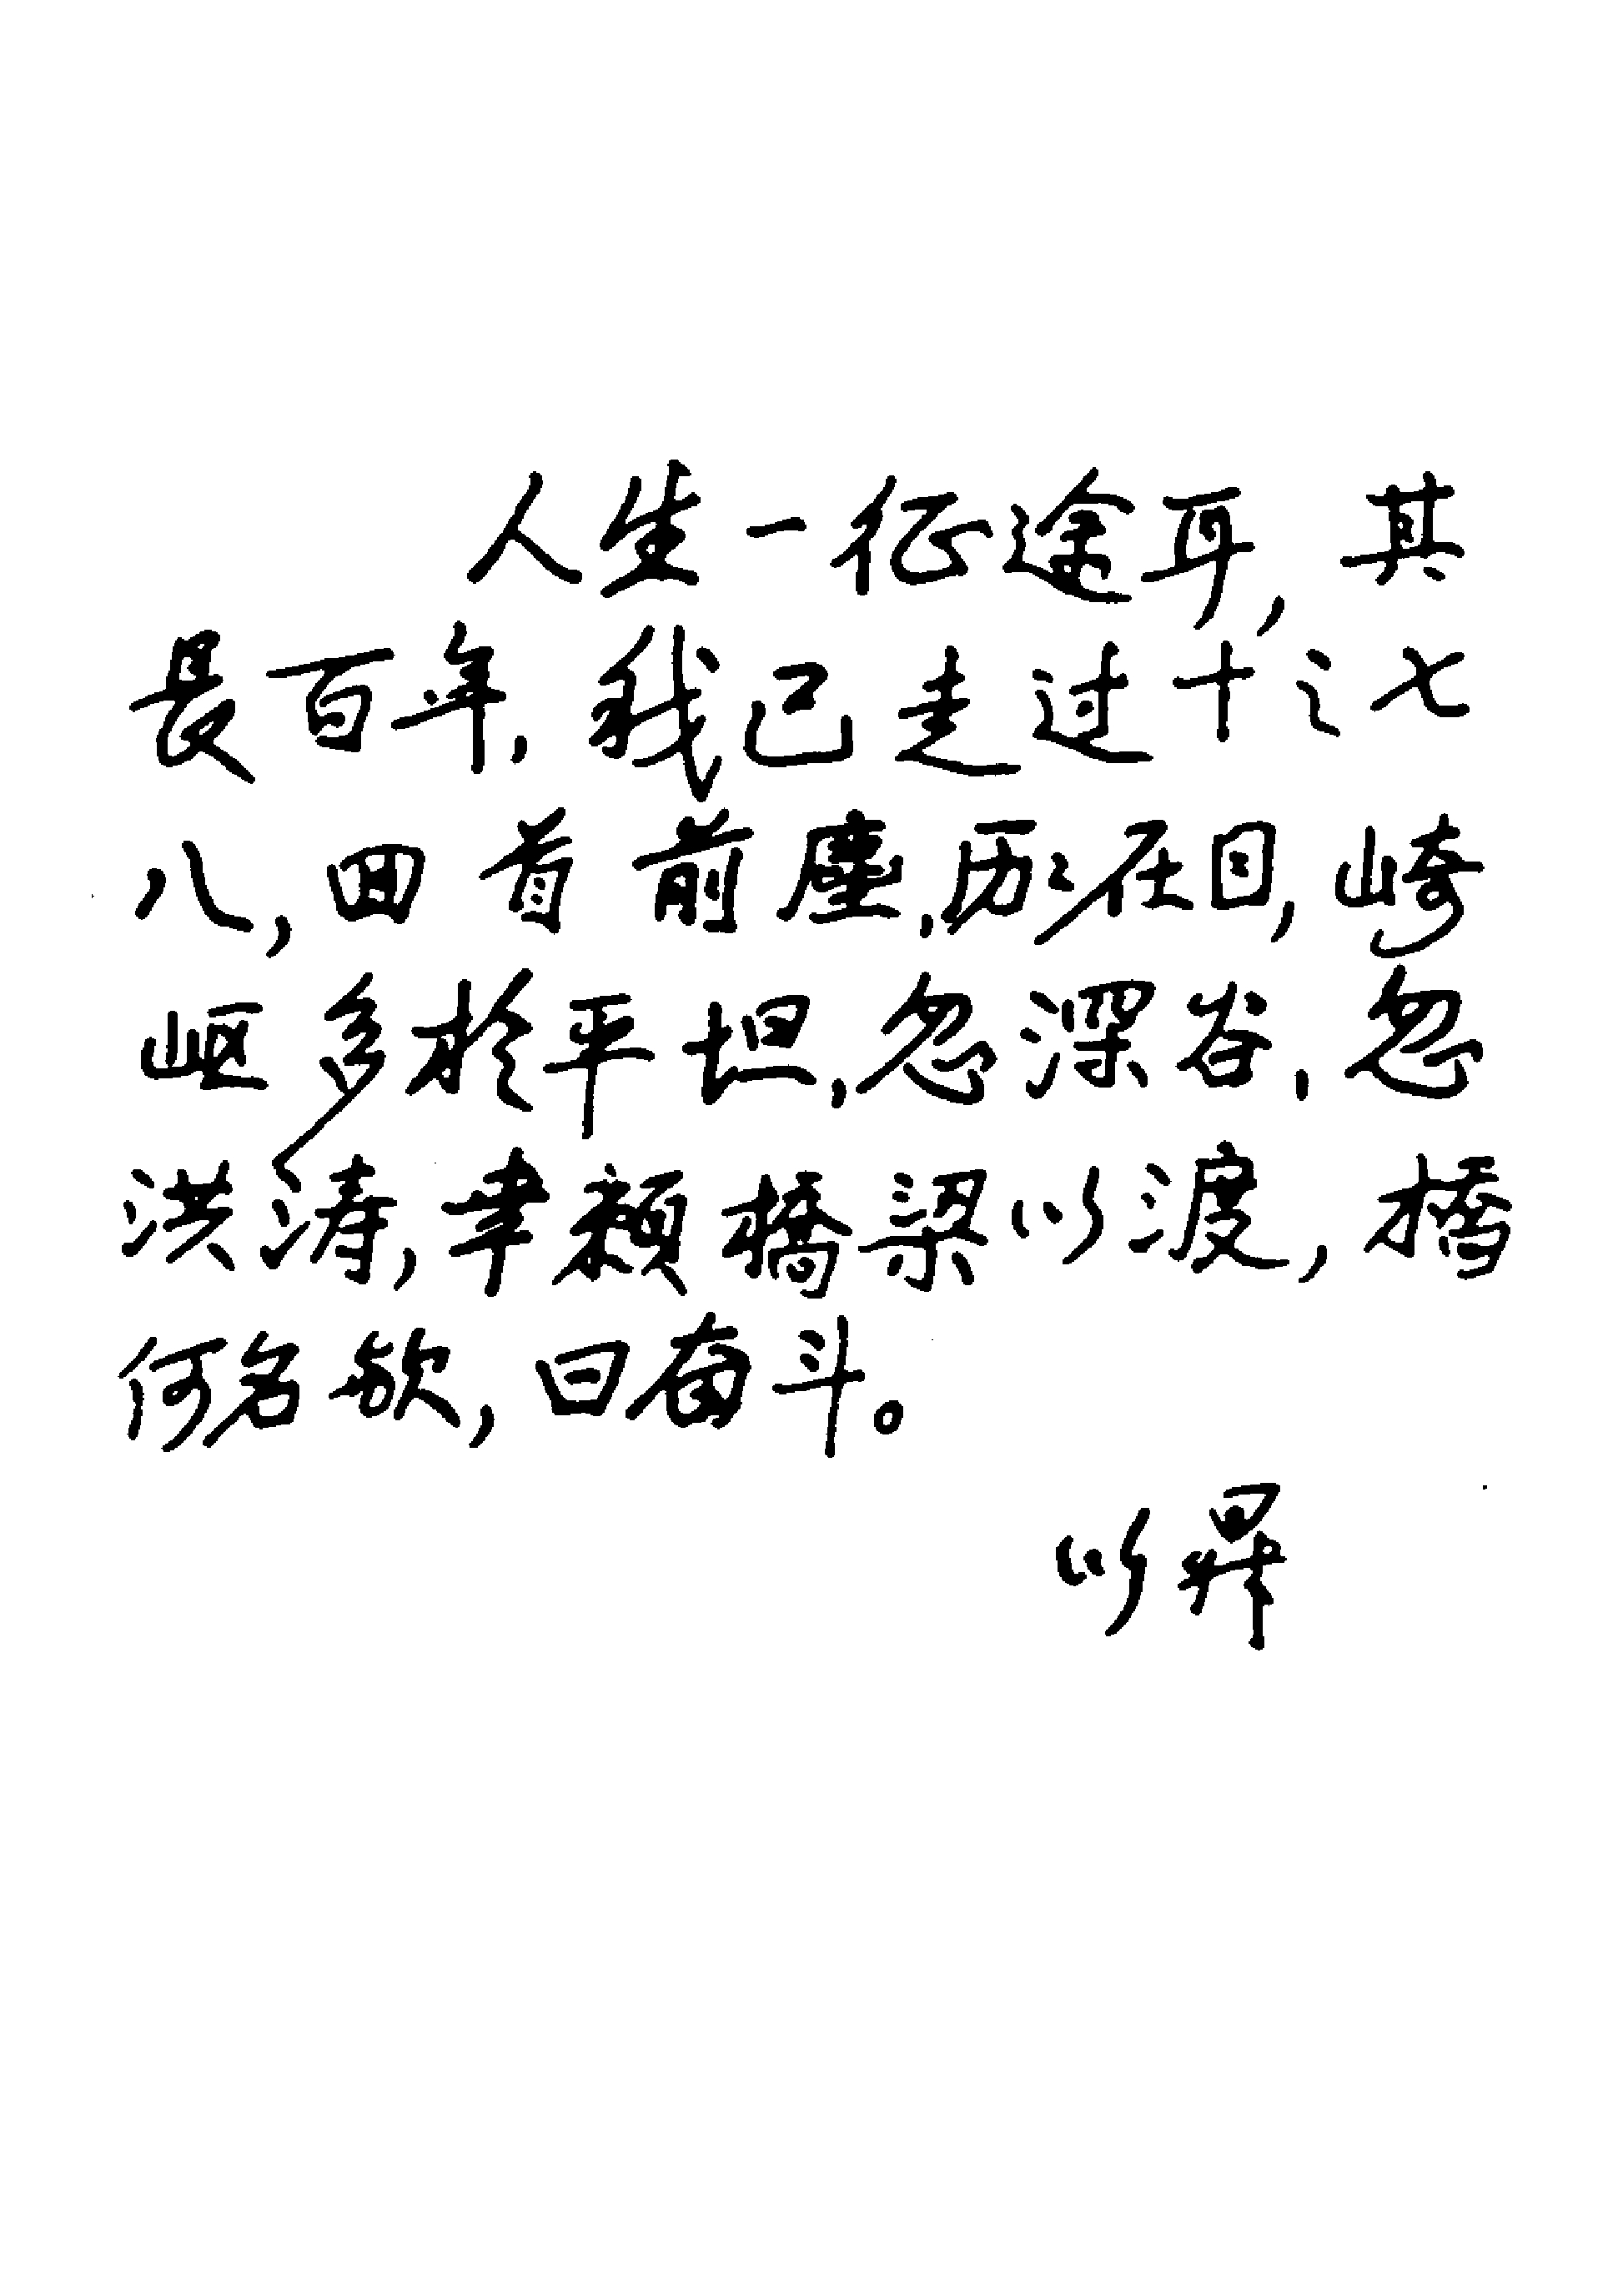 人生一征途耳，其
長百年，我已走过十之七
八，回首前塵，历々在目，崎
岖多於平坦，忽深谷，忽
洪涛，幸赖橋梁以渡，橋
何名欤，曰奋斗。
以昇